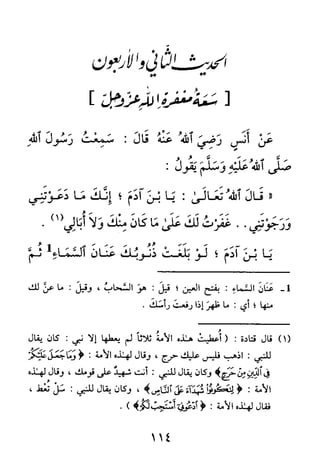 الحديث الثاني والأربعون
[ سَعَة مغفرة اللَّه عزَّ وجلَّ ]
عَنْ أَنَسٍ رَضِيَ اللهُ عَنْهُ قَالَ : سَمِعْتُ رَسُولَ اللهِ
صَلَّى اللهُ عَلَيْهِ وَسَلَّمَ يَقُولُ :
« قَالَ اللهُ تَعَالَىٰ : يَا بْنَ آدَمَ ؛ إِنَّكَ مَا دَعَوْتَنِي
وَرَجَوْتَنِي .. غَفَرْتُ لَكَ عَلَىٰ مَا كَانَ مِنْكَ وَلاَ أُبَالِي (١) .
يَا بْنَ آدَمَ ؛ لَوْ بَلَغَتْ ذُنُوبُكَ عَنَانَ السَّمَاءِ 1 ثُمَّ
1- عَنَان السَّماء : بفتح العين ؛ قيل : هو السَّحاب ، وقيل : ما عنَّ لك
منها ؛ أي : ما ظهر إذا رفعت رأسك .
(١) قال قتادة : ( أُعطيتْ هـٰذه الأمةُ ثلاثاً لم يعطها إلا نبي : كان يقال
للنبي : اذهب فليس عليك حرج ، وقال لهـٰذه الأمة : ﴿ وَمَا جَعَلَ عَلَيْكُمْ
فِي ٱلدِّينِ مِنْ حَرَجٍ ﴾ وكان يقال للنبي : أنت شهيدٌ على قومك ، وقال لهـٰذه
الأمة : ﴿ لِتَكُونُوا شُهَدَاءَ عَلَى ٱلنَّاسِ ﴾ ، وكان يقال للنبي : سَلْ تُعْطَ ،
فقال لهـٰذه الأمة : ﴿ ٱدْعُونِي أَسْتَجِبْ لَكُمْ ﴾ ) .
١١٤